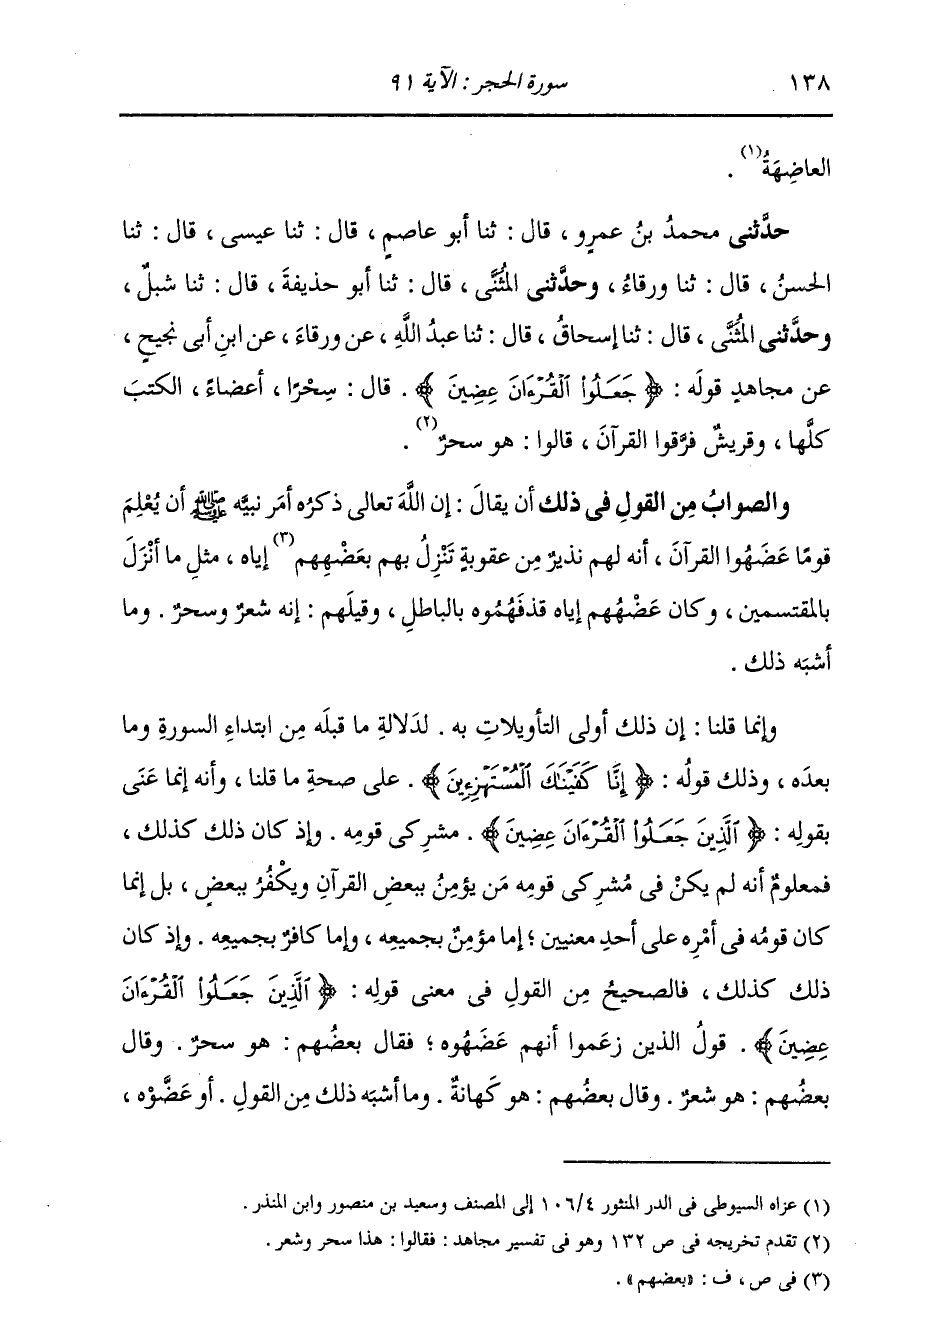 ١٣٨ سورة الحجر : الآية ٩١
العاضِهَةُ(١) .
حدَّثنى محمدُ بنُ عمرٍو ، قال : ثنا أبو عاصمٍ ، قال : ثنا عيسى ، قال : ثنا
الحسنُ ، قال : ثنا ورقاءُ ، وحدَّثنى المُثَنَّى ، قال : ثنا أبو حذيفةَ ، قال : ثنا شبلٌ ،
وحدَّثنى المُثَنَّى ، قال : ثنا إسحاقُ ، قال : ثنا عبدُ اللَّهِ ، عن ورقاءَ ، عن ابنِ أبى نجيحٍ ،
عن مجاهدٍ قولَه : ﴿ جَعَلُوا۟ ٱلْقُرْءَانَ عِضِينَ ﴾ . قال : سِحْرًا ، أعضاءً ، الكتبَ
كلَّها ، وقريشٌ فرَّقوا القرآنَ ، قالوا : هو سحرٌ(٢) .
والصوابُ مِن القولِ فى ذلك أن يقالَ : إن اللَّهَ تعالى ذكرُه أمَر نبيَّه ﷺ أن يُعْلِمَ
قومًا عَضَهُوا القرآنَ ، أنه لهم نذيرٌ مِن عقوبةٍ تَنْزِلُ بهم بعَضْهِهم(٣) إياه ، مثلِ ما أنْزَلَ
بالمقتسمين ، وكان عَضْهُهم إياه قذفَهُموه بالباطلِ ، وقيلَهم : إنه شعرٌ وسحرٌ . وما
أشبَه ذلك .
وإنما قلنا : إن ذلك أولى التأويلاتِ به . لدَلالةِ ما قبلَه مِن ابتداءِ السورةِ وما
بعدَه ، وذلك قولُه : ﴿ إِنَّا كَفَيْنَٰكَ ٱلْمُسْتَهْزِءِينَ ﴾ . على صحةِ ما قلنا ، وأنه إنما عَنَى
بقولِه : ﴿ ٱلَّذِينَ جَعَلُوا۟ ٱلْقُرْءَانَ عِضِينَ ﴾ . مشركى قومِه . وإذ كان ذلك كذلك ،
فمعلومٌ أنه لم يكنْ فى مُشركى قومِه مَن يؤمِنُ ببعضِ القرآنِ ويكْفُرُ ببعضٍ ، بل إنما
كان قومُه فى أمْرِه على أحدِ معنيين ؛ إما مؤمِنٌ بجميعِه ، وإما كافرٌ بجميعِه . وإذ كان
ذلك كذلك ، فالصحيحُ مِن القولِ فى معنى قولِه : ﴿ ٱلَّذِينَ جَعَلُوا۟ ٱلْقُرْءَانَ
عِضِينَ ﴾ . قولُ الذين زعَموا أنهم عَضَهُوه ؛ فقال بعضُهم : هو سحرٌ . وقال
بعضُهم : هو شعرٌ . وقال بعضُهم : هو كَهانةٌ . وما أشبَه ذلك مِن القولِ . أو عَضَّوْه ،
(١) عزاه السيوطى فى الدر المنثور ١٠٦/٤ إلى المصنف وسعيد بن منصور وابن المنذر .
(٢) تقدم تخريجه فى ص ١٣٢ وهو فى تفسير مجاهد : فقالوا : هذا سحر وشعر .
(٣) فى ص ، ف : «بعضهم» .